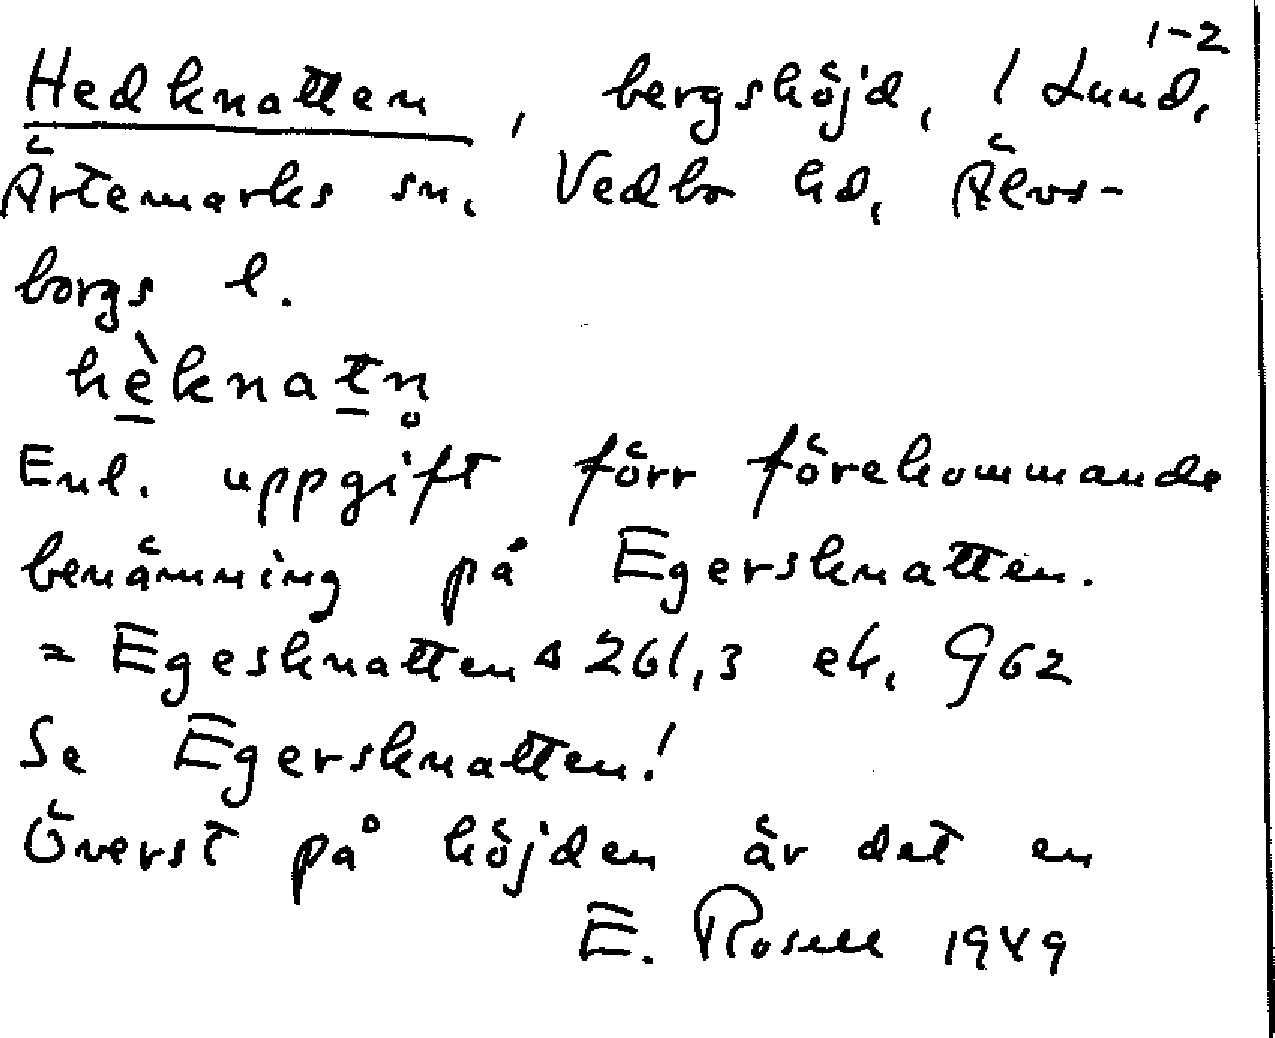 1-2
Hedknatten, bergshöjd, 1 Lund,
Ärtemarks sn, Vedbo hd, Älvs-
borgs l.
hèknatn̥
Enl. uppgift förr förekommande
benämning på Egersknatten.
= Egesknatten △ 261,3 ek. 962
Se Egersknatten!
Överst på höjden är det en
E. Rosell 1949